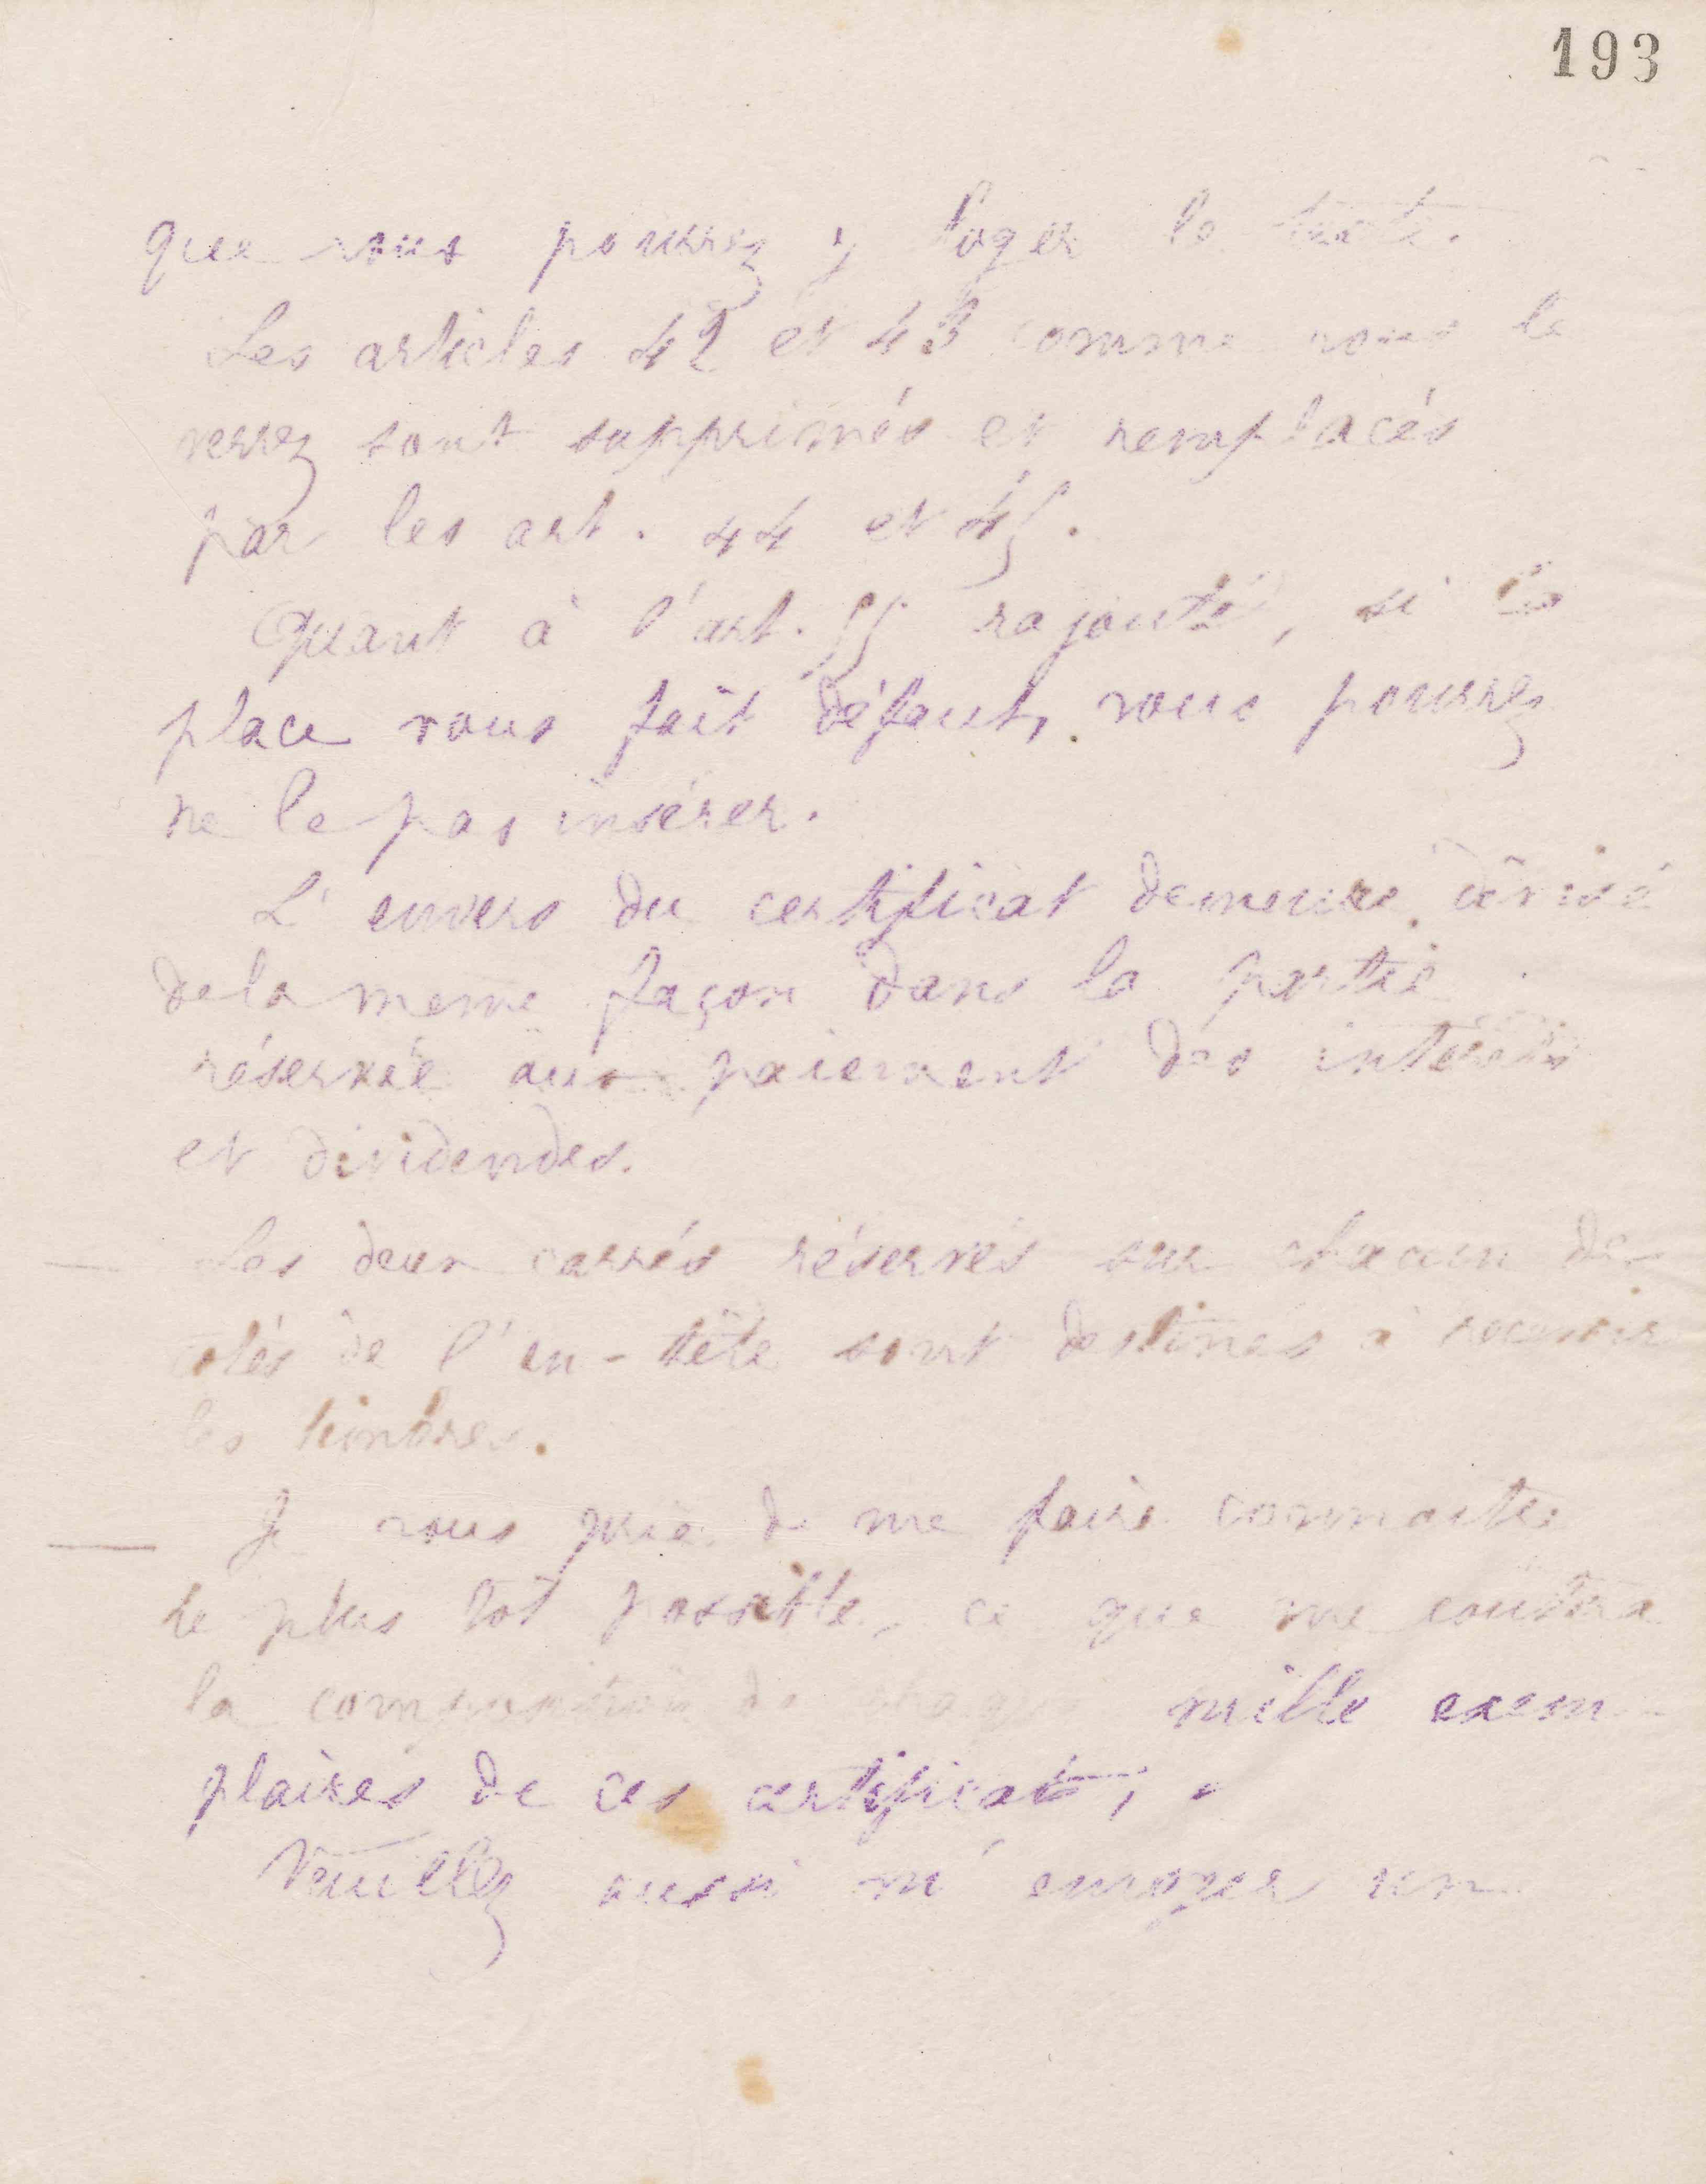 193
que vous pourrez y loger le texte.
Les articles 42 et 43 comme vous le
verrez sont supprimés et remplacés
par les art. 44 et 45.
Quant à l'art. 55 rajouté, si la
place vous fait défaut, vous pourrez
ne le pas insérer.
L'envers du certificat demeure divisé
de la meme façon dans la partie
réservée aux paiement des intérêts
et dividendes.
— Les deux carrés réservés sur chacun des
cotés de l'en-tête sont destinés à recevoir
les timbres.
— Je vous prie de me faire connaitre
le plus tôt possible, ce que me coutera
la composition de mille exem-
plaires de ces certificats,
Veuillez aussi m'envoyer un